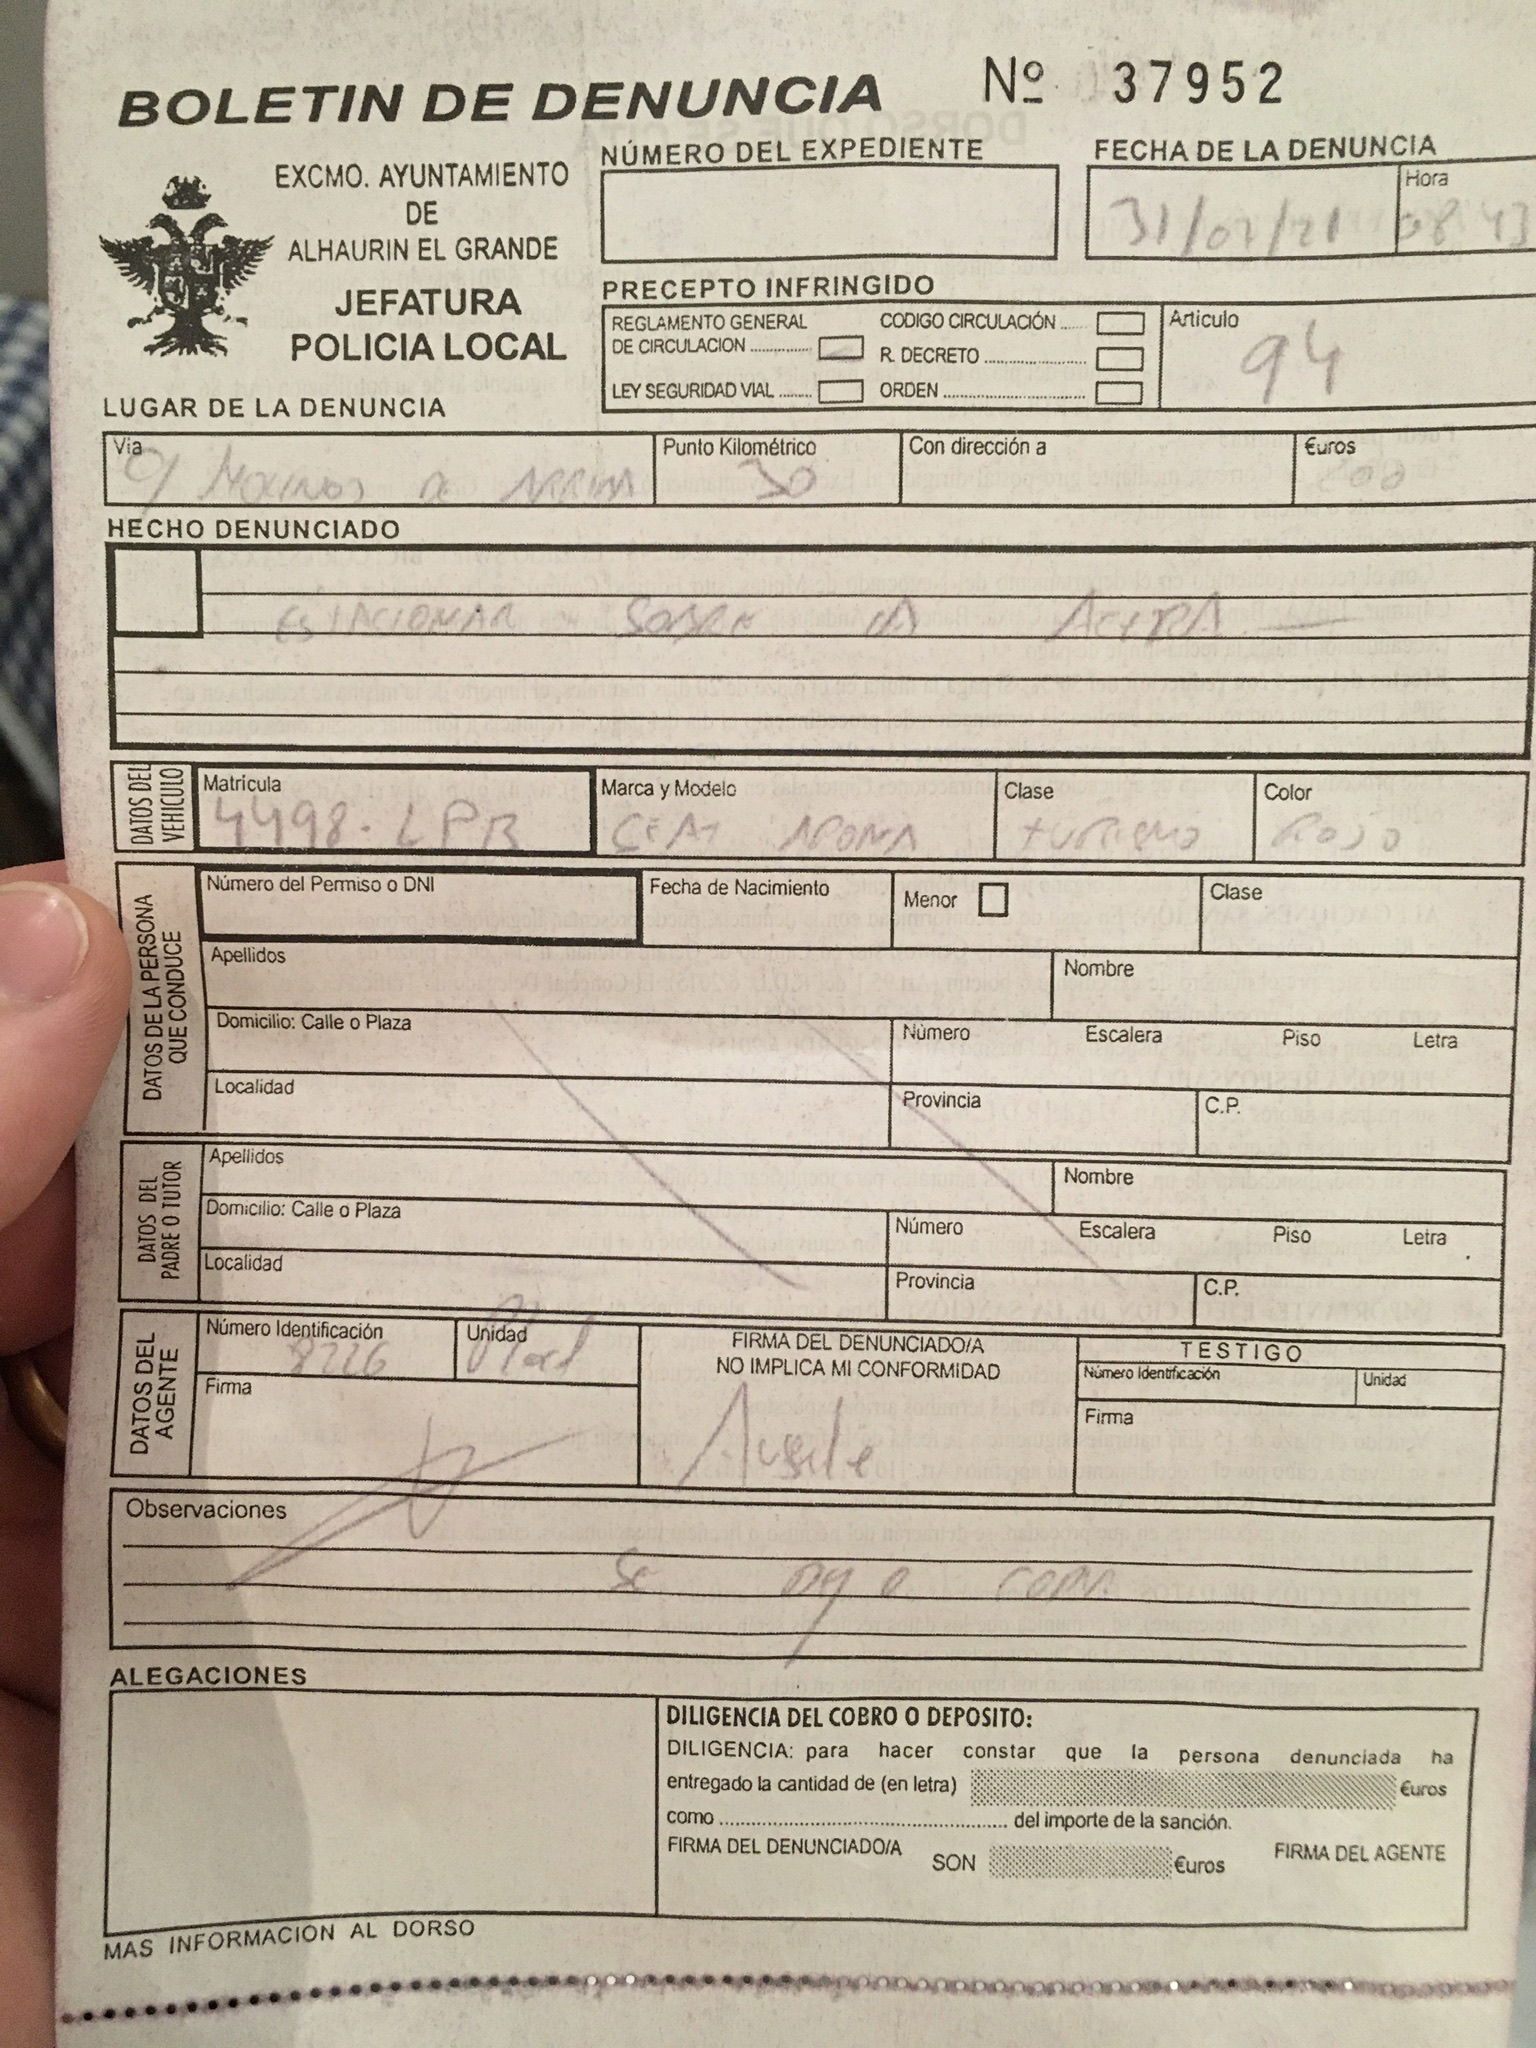 BOLETIN DE DENUNCIA Nº 37952
EXCMO. AYUNTAMIENTO
DE
ALHAURIN EL GRANDE
JEFATURA
POLICIA LOCAL
NÚMERO DEL EXPEDIENTE
FECHA DE LA DENUNCIA
Hora
31/07/21 08 43
PRECEPTO INFRINGIDO
REGLAMENTO GENERAL
DE CIRCULACION
LEY SEGURIDAD VIAL
CODIGO CIRCULACIÓN
R. DECRETO
ORDEN
Artículo
94
LUGAR DE LA DENUNCIA
Via
C/ Molinos de Arriba
Punto Kilométrico
30
Con dirección a
€uros
200
HECHO DENUNCIADO
ESTACIONAR SOBRE LA ACERA
DATOS DEL
VEHICULO
Matrícula
4498-LPB
Marca y Modelo
CEAT ARONA
Clase
turismo
Color
ROJO
DATOS DE LA PERSONA
QUE CONDUCE
Número del Permiso o DNI
Fecha de Nacimiento
Menor
Clase
Apellidos
Nombre
Domicilio: Calle o Plaza
Número Escalera Piso Letra
Localidad
Provincia
C.P.
DATOS DEL
PADRE O TUTOR
Apellidos
Nombre
Domicilio: Calle o Plaza
Número Escalera Piso Letra
Localidad
Provincia
C.P.
DATOS DEL
AGENTE
Número Identificación
8226
Unidad
Firma
FIRMA DEL DENUNCIADO/A
NO IMPLICA MI CONFORMIDAD
TESTIGO
Número Identificación
Unidad
Firma
Observaciones
Se copia
ALEGACIONES
DILIGENCIA DEL COBRO O DEPOSITO:
DILIGENCIA: para hacer constar que la persona denunciada ha
entregado la cantidad de (en letra) €uros
como .............................................. del importe de la sanción.
FIRMA DEL DENUNCIADO/A
SON €uros
FIRMA DEL AGENTE
MAS INFORMACION AL DORSO